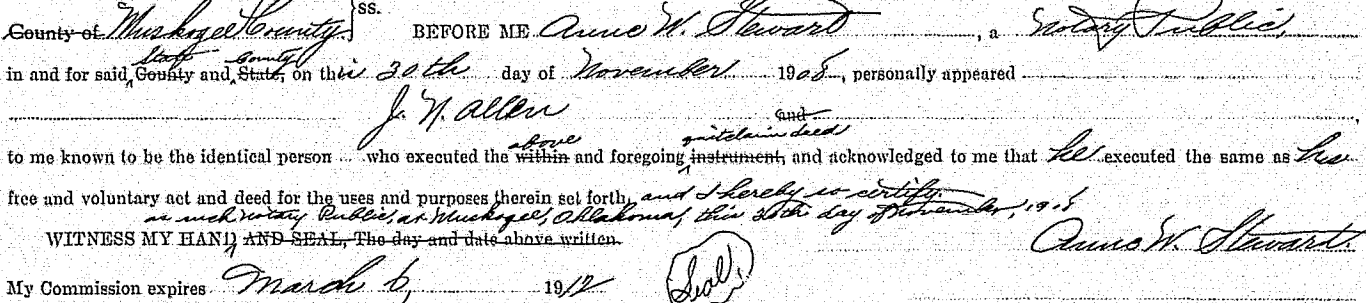 County of Muskogee County. } ss. BEFORE ME Anne W. Stewart, a Notary Public,
State County
in and for said County and State, on this 30th day of November 1908, personally appeared
J. N. Allen
and
above quitclaim deed
to me known to be the identical person who executed the within and foregoing instrument, and acknowledged to me that he executed the same as his
free and voluntary act and deed for the uses and purposes therein set forth, and I hereby so certify
as such Notary Public, at Muskogee, Oklahoma, this 30th day of November, 1908
WITNESS MY HAND AND SEAL, The day and date above written. Anne W. Stewart.
My Commission expires March 6, 1912 (Seal)